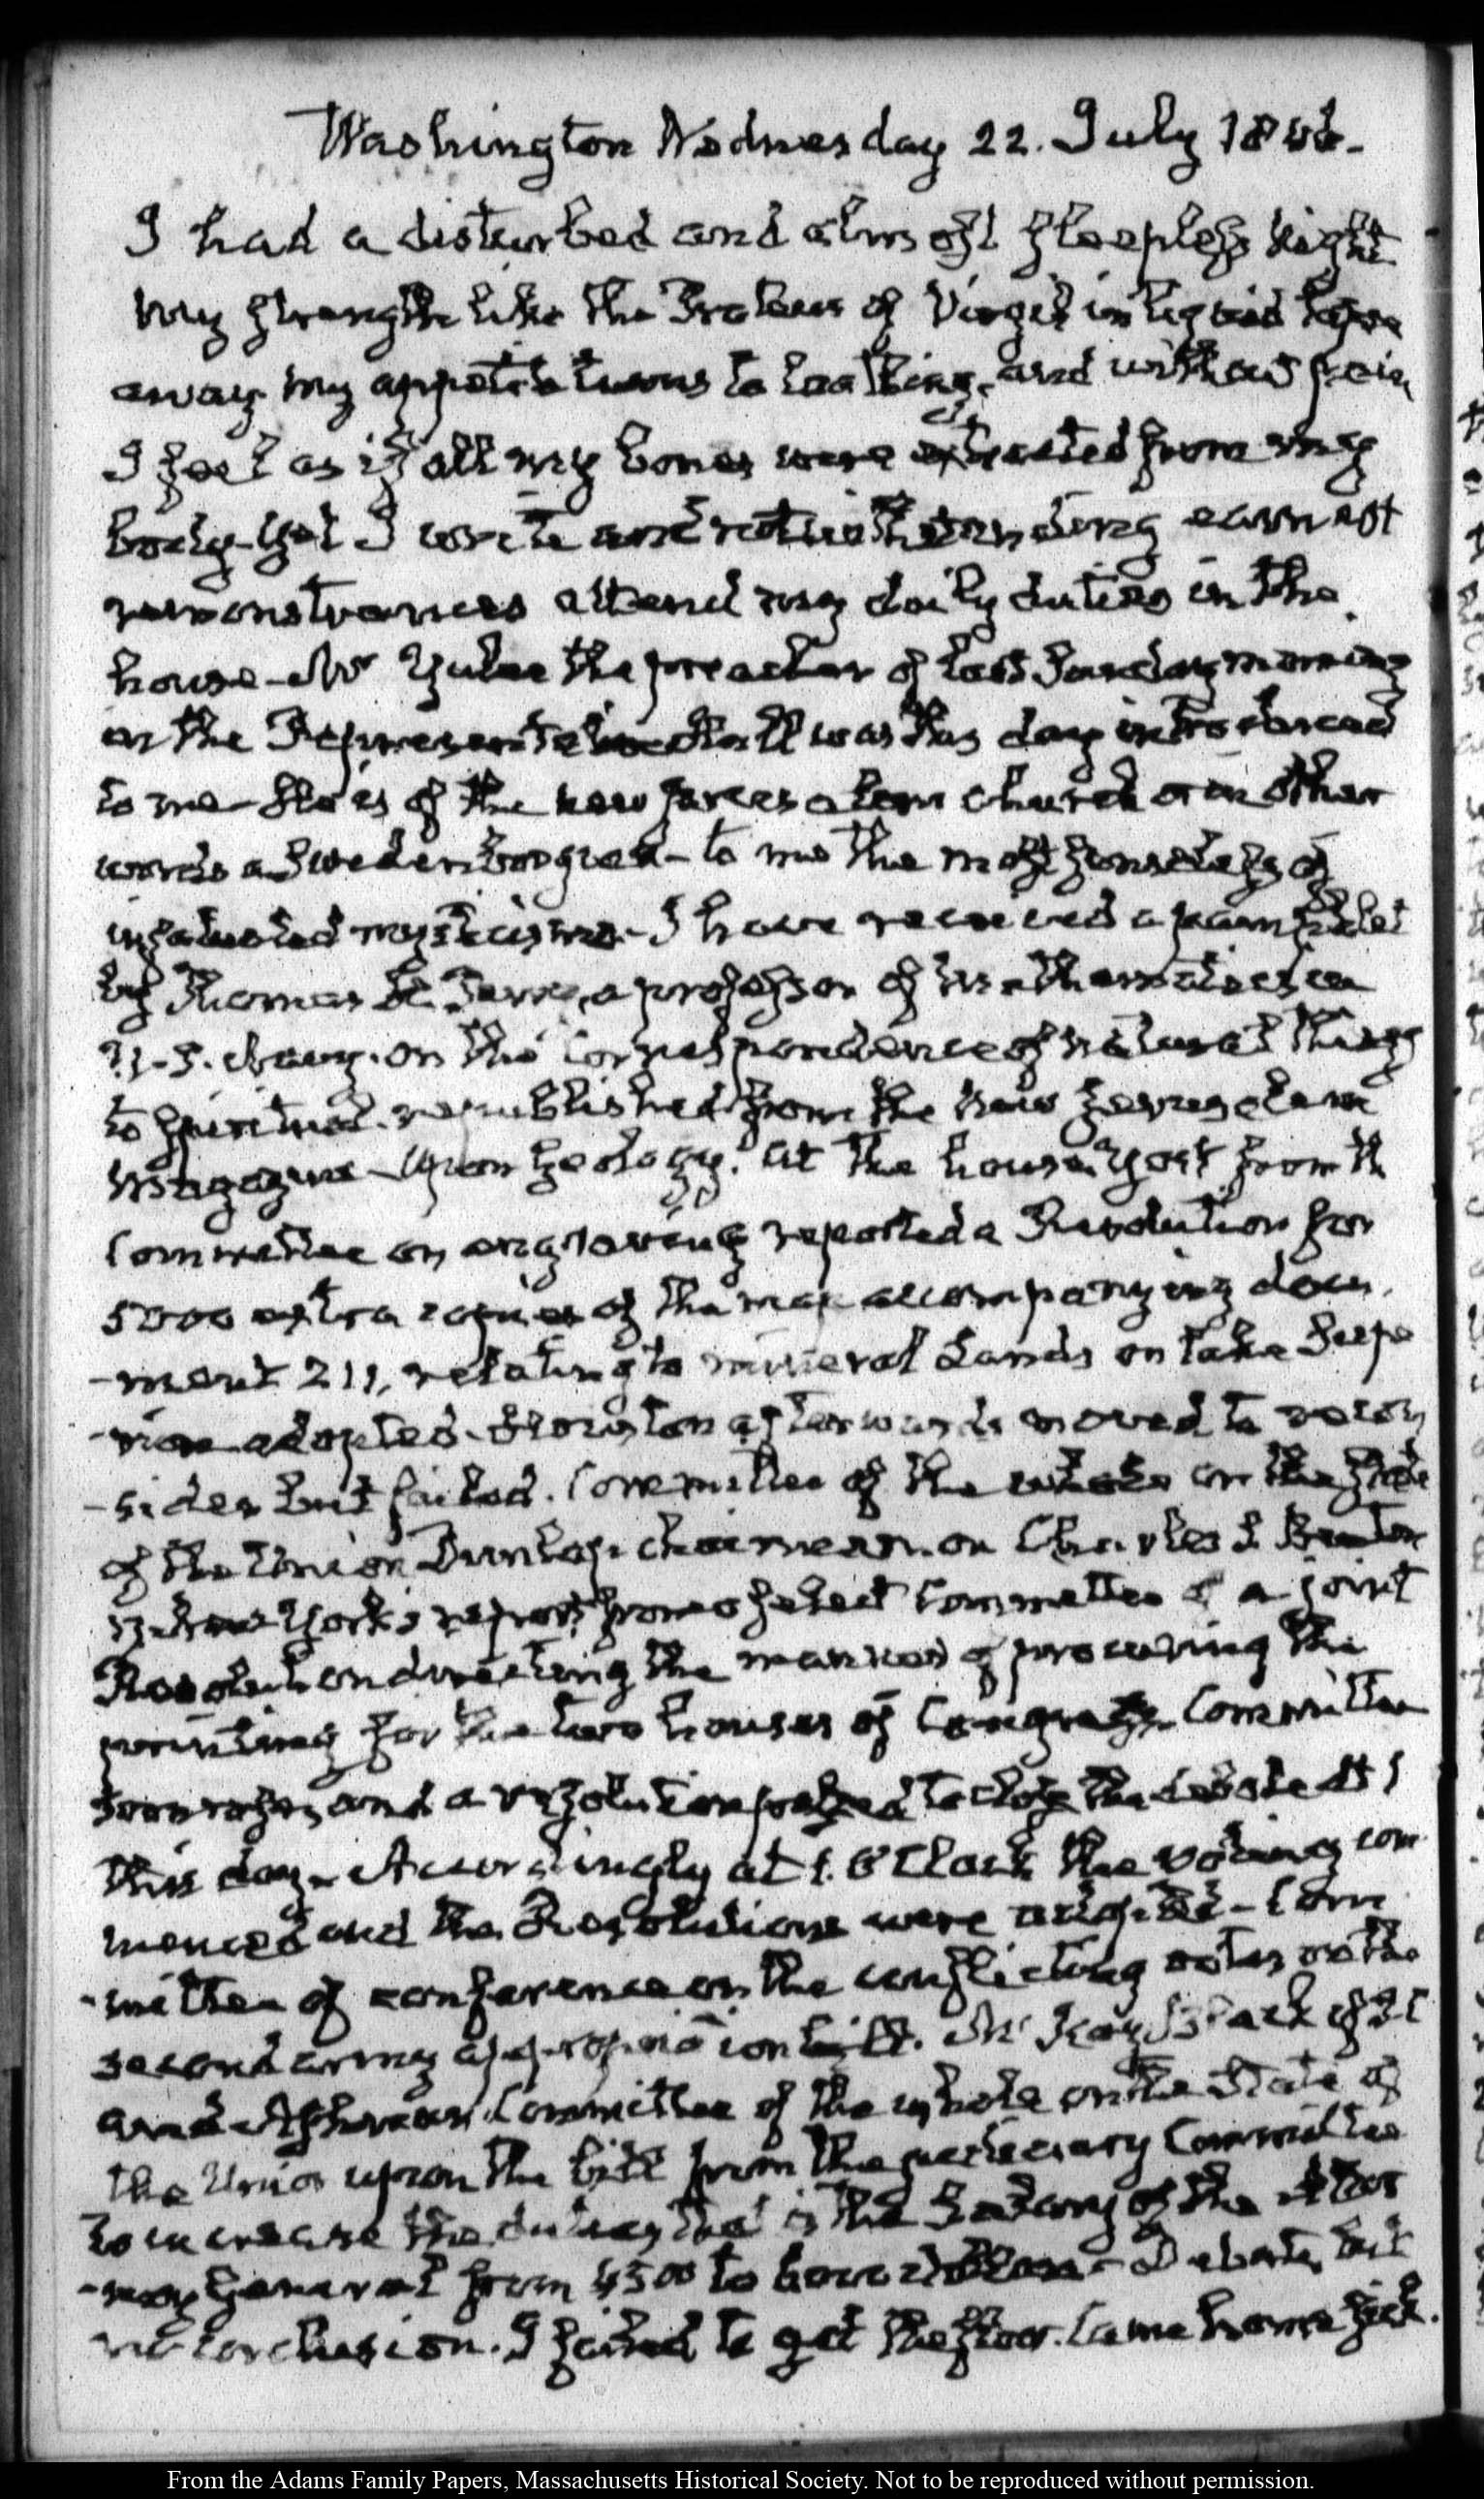 Washington Wednesday 22. July 1846.
I had a disturbed and almost sleepless night
My strength like the Proteus of Virgil in liquid
away my appetite turns to loathing, and without pain
I feel as if all my bones were extracted from my
body. Yet I write and notwithstanding earnest
remonstrances attend my daily duties in the
house — Mr Yulee the preacher of last Sunday morning
in the Representative Hall was this day introduced
to me — He is of the new Jerusalem Church or in other
words a Swedenborgian — to me the most senseless of
infatuated mysticisms — I have received a pamphlet
by Thomas a professor of Mathematics in
U.S. Navy. on the Correspondence of natural things
to spiritual. republished from the New Jerusalem
Magazine — Upon Geology. At the house Yost from th
Committee on engraving reported a Resolution for
5000 extra copies of the map accompanying docu
-ment 211, relating to mineral Lands on Lake Supe
-rior adopted. Houston afterwards moved to recon
-sider but failed. Committee of the whole on the State
of the Union Dunlap chairman. on Charles S Benton
of New York's report from a select Committee of a joint
Resolution directing the manner of procuring the
printing for the two houses of Congress. Committee
soon rose, and a resolution passed to close the debate at 1
this day — Accordingly at 1. O'Clock the voting com
menced and the Resolutions were adopted — Com
-mittee of conference on the conflicting votes on the
second army appropriation bill. Mc Kay, Black of S C
and Ashmun. Committee of the whole on the State of
the Union upon the bill from the judiciary Committee
to increase the duties, that is the Salary of the Attor
-ney General from 4500 to dollars — Debate, but
no conclusion. I failed to get the floor. Came home sick.
From the Adams Family Papers, Massachusetts Historical Society. Not to be reproduced without permission.